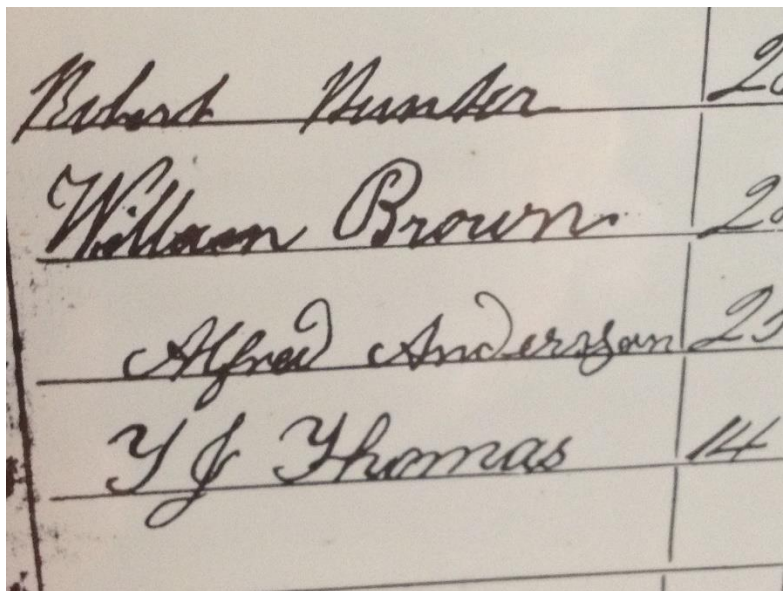 Robert Hunter 2
William Brown 2
Alfred Anderson 2
T J Thomas 14